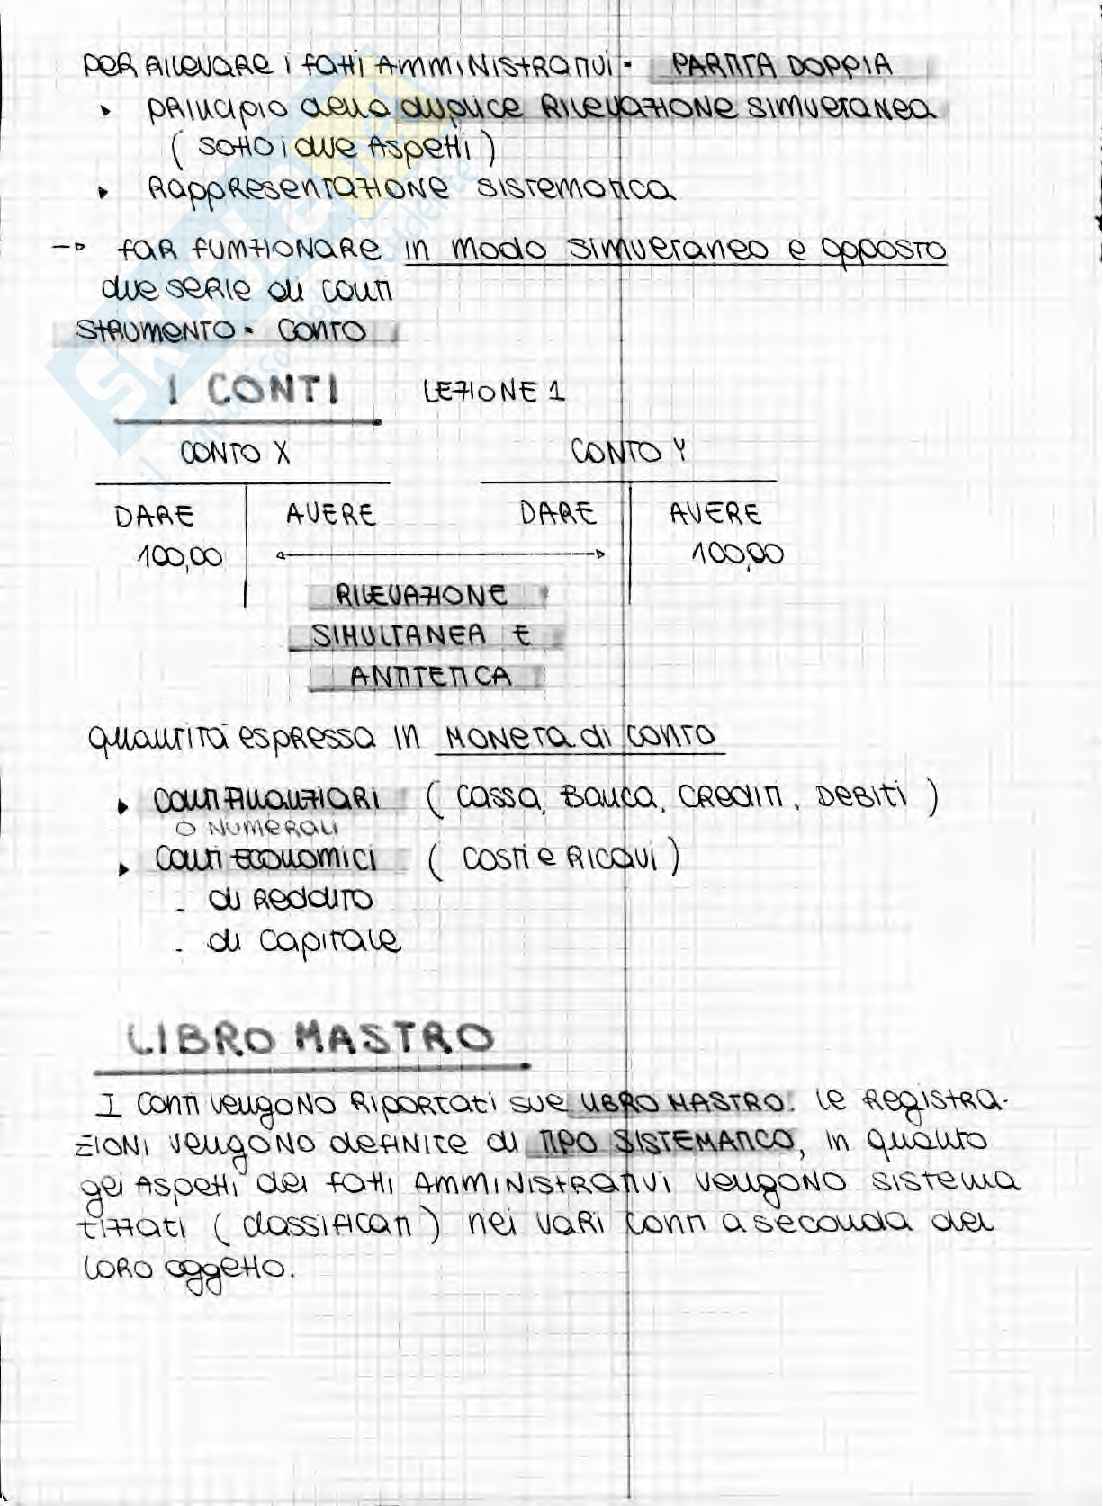 per rilevare i fatti amministrativi • PARTITA DOPPIA
▸ principio della duplice rilevazione simultanea
( sotto i due aspetti )
▸ rappresentazione sistematica
→ far funzionare in modo simultaneo e opposto
due serie di conti
STRUMENTO • CONTO
I CONTI LEZIONE 1
CONTO X CONTO Y
DARE AVERE DARE AVERE
100,00 100,00
RILEVAZIONE
SIMULTANEA E
ANTITETICA
quantità espressa in moneta di conto
▸ conti finanziari ( cassa, banca, crediti, debiti )
o numerali
▸ conti economici ( costi e ricavi )
- di reddito
- di capitale
LIBRO MASTRO
I conti vengono riportati sul LIBRO MASTRO. Le registra-
zioni vengono definite di TIPO SISTEMATICO, in quanto
gli aspetti dei fatti amministrativi vengono sistema
tizzati ( classificati ) nei vari conti a seconda del
loro oggetto.